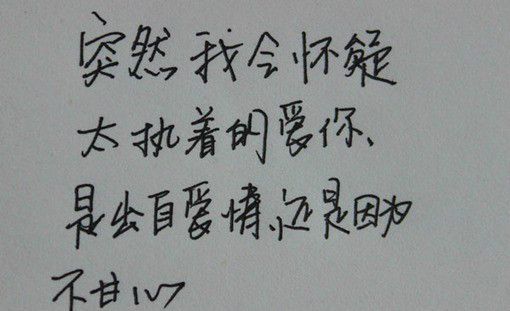 突然我会怀疑
太执着的爱你、
是出自爱情,还是因为
不甘心